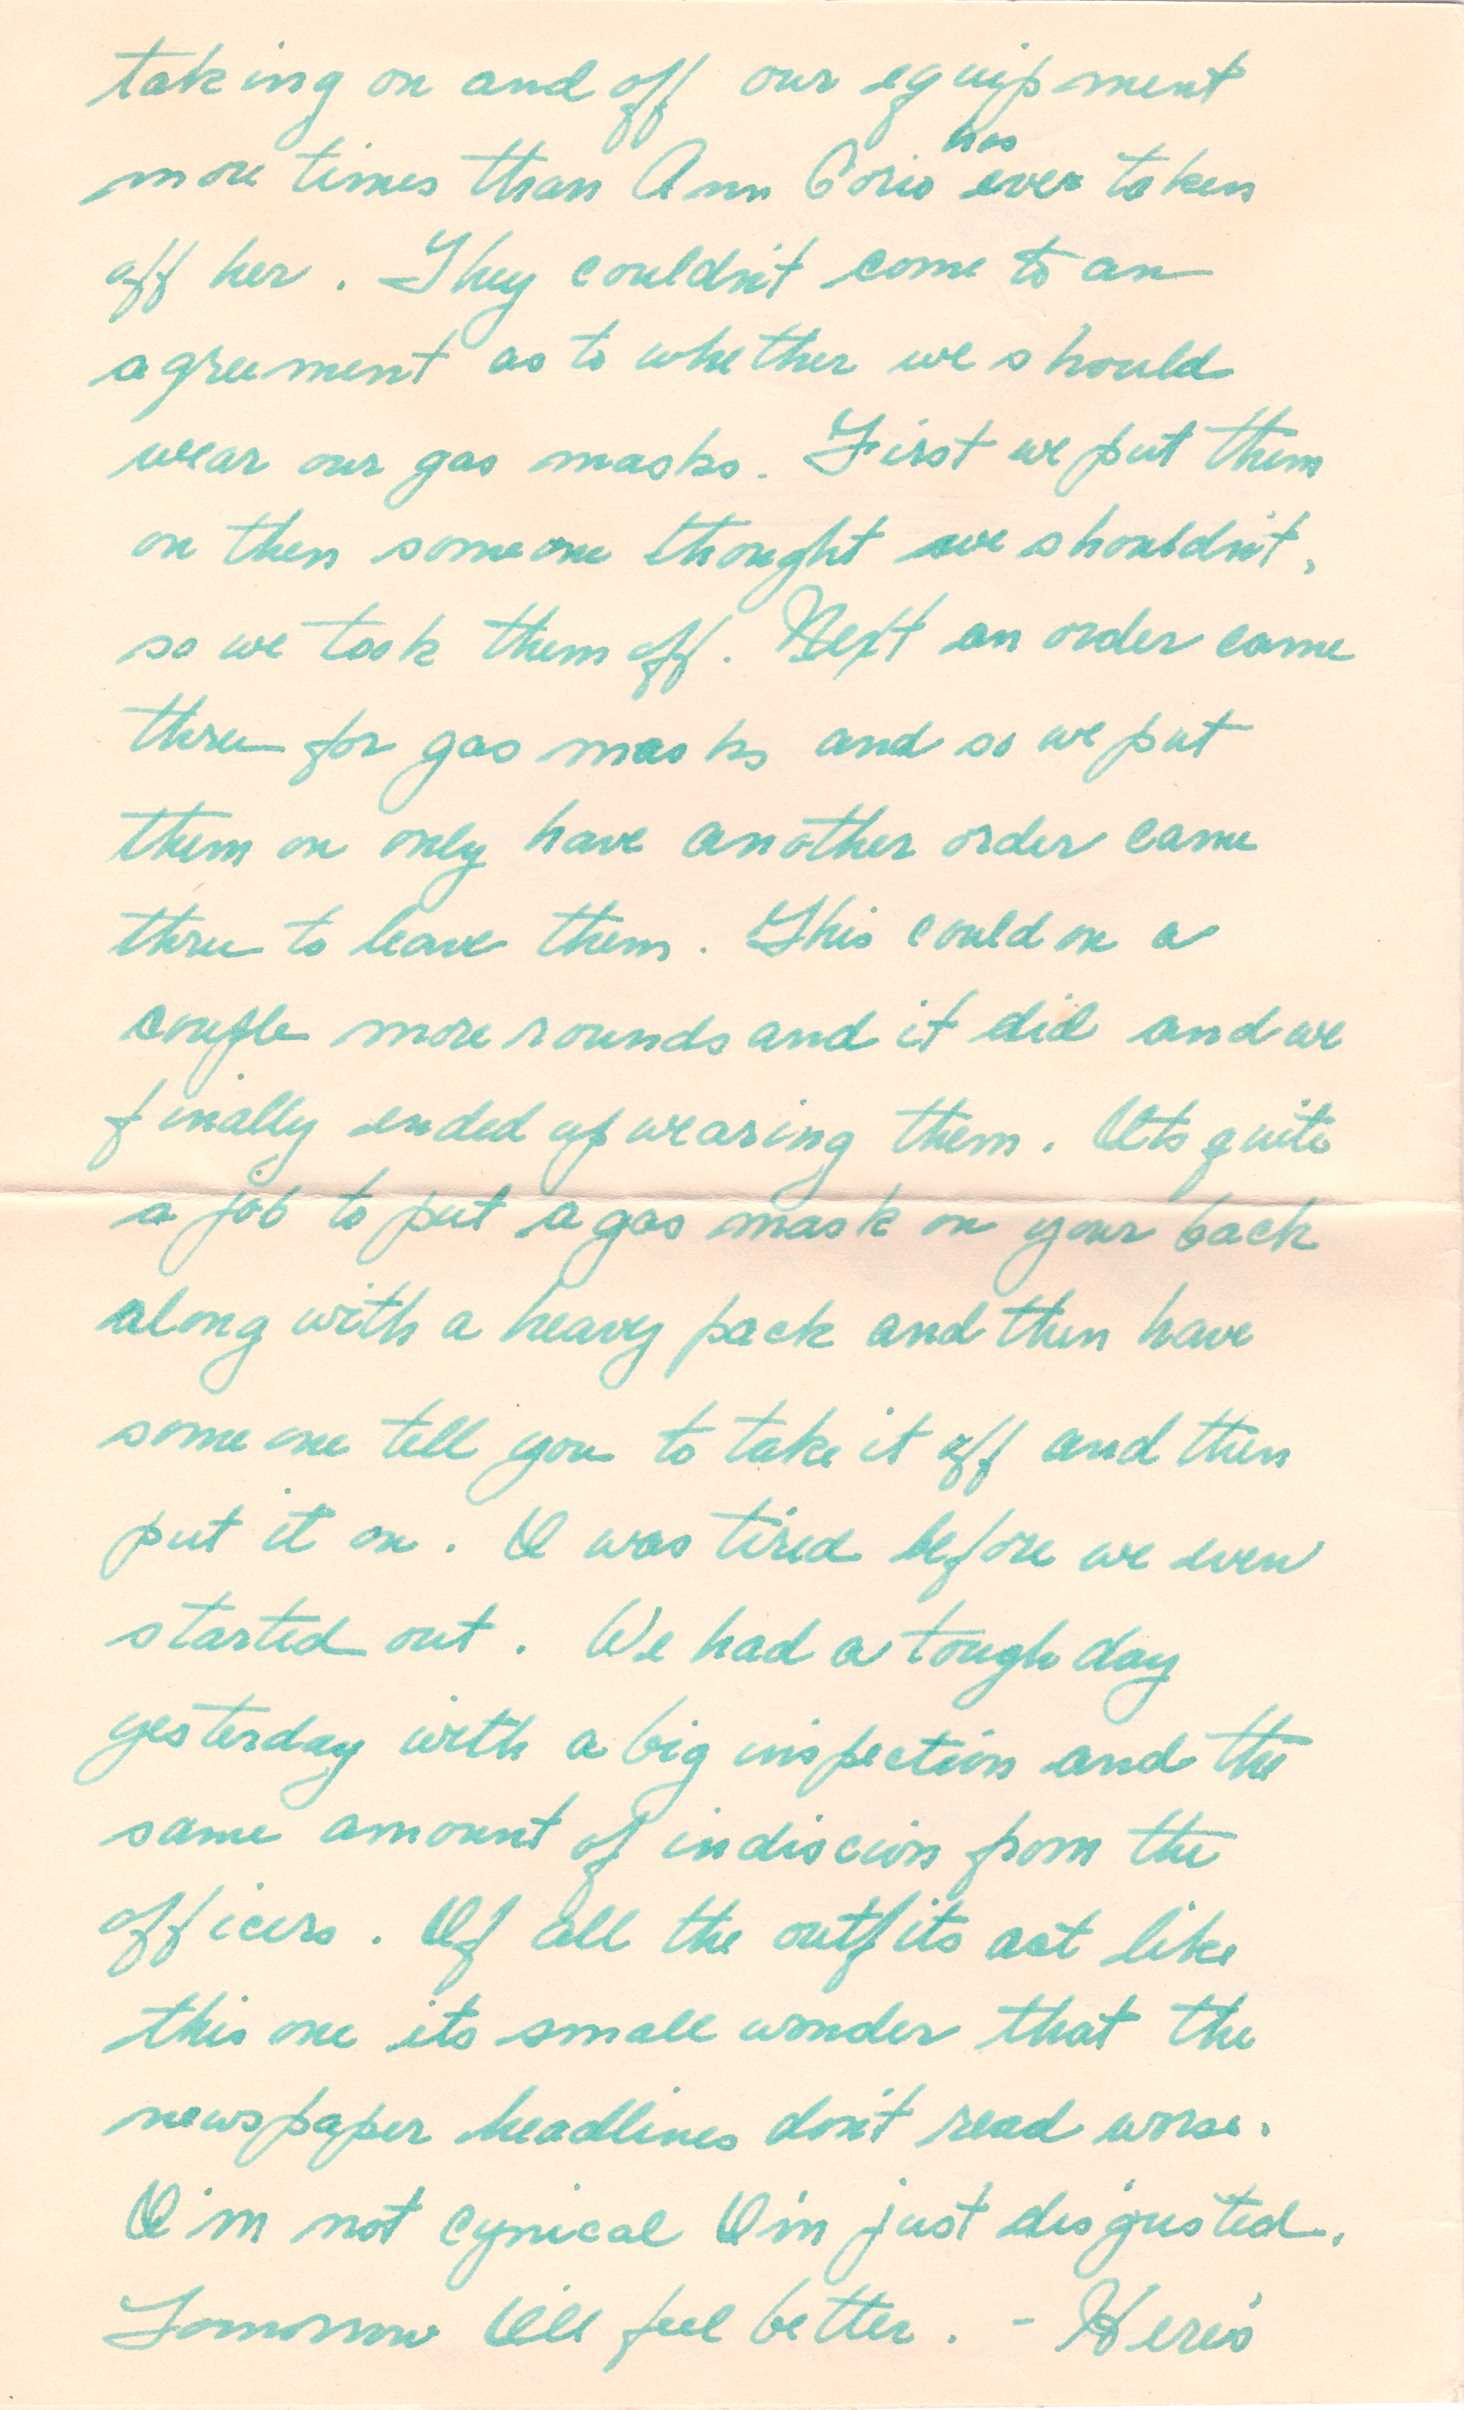 taking on and off our equipment
more times than Ann Corio has ever taken
off her. They couldn't come to an
agreement as to whether we should
wear our gas masks. First we put them
on then someone thought we shouldn't,
so we took them off. Next an order came
thru for gas masks and so we put
them on only have another order came
thru to leave them. This could on a
couple more rounds and it did and we
finally ended up wearing them. Its quite
a job to put a gas mask on your back
along with a heavy pack and then have
some one tell you to take it off and then
put it on. I was tired before we even
started out. We had a tough day
yesterday with a big inspection and the
same amount of indiscion from the
officers. If all the outfits act like
this one its small wonder that the
newspaper headlines don't read worse.
I'm not cynical I'm just disgusted.
Tomorrow I'll feel better. - Here's